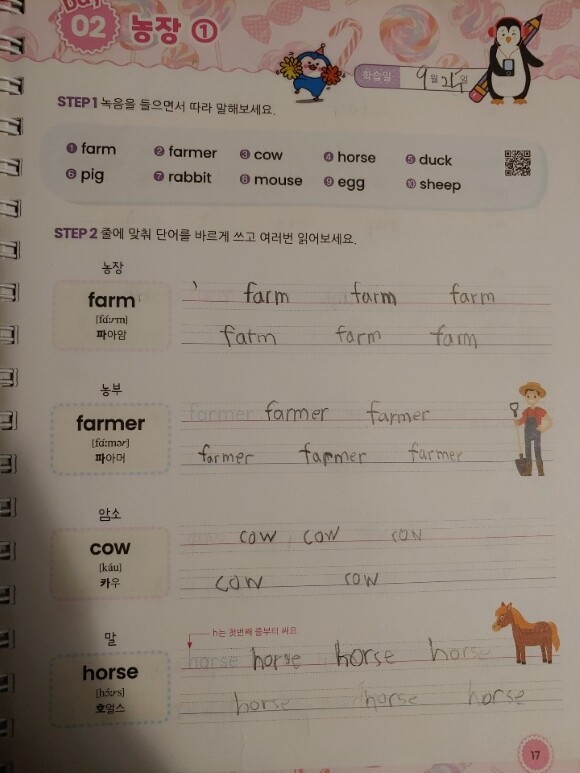 DAY
02 농장 ①
학습일 9월 21일
STEP 1 녹음을 들으면서 따라 말해보세요.
① farm ② farmer ③ cow ④ horse ⑤ duck
⑥ pig ⑦ rabbit ⑧ mouse ⑨ egg ⑩ sheep
STEP 2 줄에 맞춰 단어를 바르게 쓰고 여러번 읽어보세요.
농장
farm farm farm farm
[fɑːrm]
파아암 farm farm farm
농부
farmer farmer farmer farmer
[fɑ́ːmər]
파아머 farmer farmer farmer
암소
cow cow cow cow
[káu]
카우 cow cow
말
h는 첫번째 줄부터 써요
horse horse horse horse horse
[hɔ́ːrs]
호얼스 horse horse horse
17